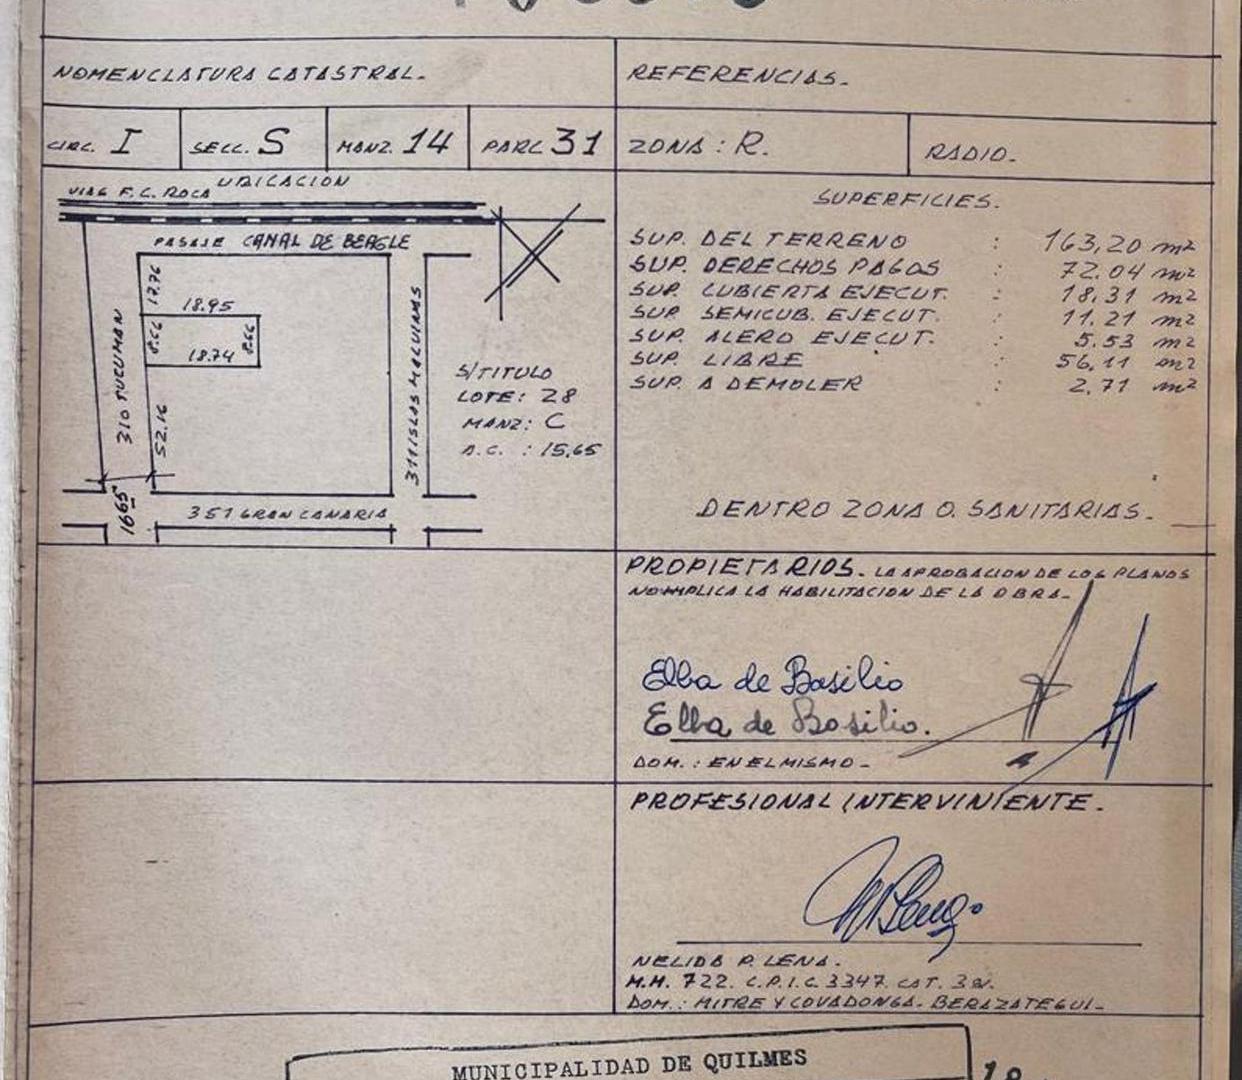 NOMENCLATURA CATASTRAL.
REFERENCIAS.
CIRC. I
SECC. S
MANZ. 14
PARC 31
ZONA: R.
RADIO.
UBICACION
VIAS F.C. ROCA
PASAJE CANAL DE BEAGLE
17.76
18.95
8.66
8.66
18.74
52.16
310 TUCUMAN
311 ISLAS MALVINAS
16.65
351 GRAN CANARIA
S/TITULO
LOTE: 28
MANZ: C
A.C. : 15.65
SUPERFICIES.
SUP. DEL TERRENO : 163,20 m2
SUP. DERECHOS PAGOS : 72.04 m2
SUP. CUBIERTA EJECUT. : 18.31 m2
SUP. SEMICUB. EJECUT. : 11.21 m2
SUP. ALERO EJECUT. : 5.53 m2
SUP. LIBRE : 56.11 m2
SUP. A DEMOLER : 2.71 m2
DENTRO ZONA O. SANITARIAS.
PROPIETARIOS. LA APROBACION DE LOS PLANOS
NO IMPLICA LA HABILITACION DE LA OBRA.
Elba de Basilio
Elba de Basilio.
DOM.: EN EL MISMO.
PROFESIONAL INTERVINIENTE.
NELIDA P. LENA.
M.M. 722. C.P.I.C. 3347. CAT. 3a.
DOM.: MITRE Y COVADONGA. BERAZATEGUI.
MUNICIPALIDAD DE QUILMES